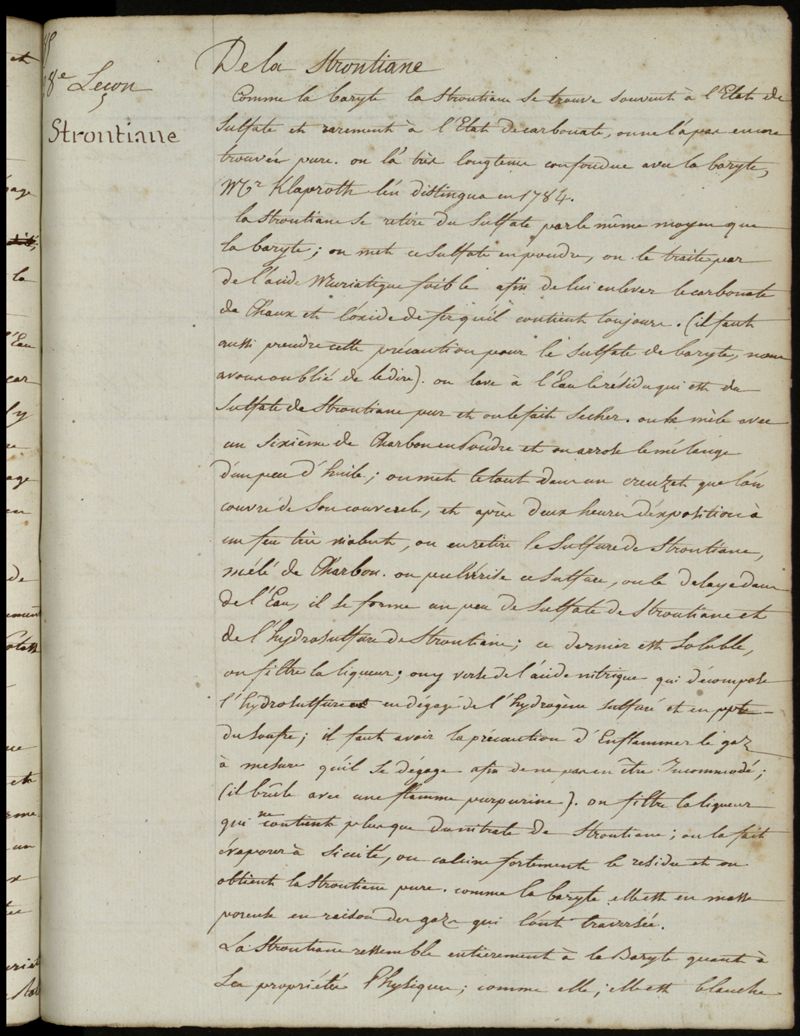 8e Leçon
Strontiane
De la Strontiane
Comme la baryte la Strontiane se trouve souvent à l'Etat de
Sulfate et rarement à l'Etat de carbonate, on ne l'a pas encore
trouvée pure. on l'a très longtems confondue avec la baryte,
Mr Klaproth l'en distingua en 1784.
la Strontiane se retire du Sulfate par le même moyen que
la baryte; on met ce Sulfate en poudre, on le traite par
de l'acide Muriatique foible afin de lui enlever le carbonate
de Chaux et l'oxide de fer qu'il contient toujours. (il faut
aussi prendre cette précaution pour le Sulfate de baryte, nous
avons oublié de le dire). on lave à l'Eau le résidu qui est du
Sulfate de Strontiane pur et on le fait secher. on le mêle avec
un sixième de Charbon en Poudre et on arrose le mélange
d'un peu d'huile; on met le tout dans un creuzet que l'on
couvre de son couvercle, et après deux heures d'exposition à
un feu très violent, on en retire le Sulfure de Strontiane,
mélé de Charbon. on pulvérise ce sulfure, on le delaye dans
de l'Eau, il se forme un peu de Sulfate de Strontiane et
de l'hydrosulfure de Strontiane; ce dernier est soluble,
on filtre la liqueur; on y verse de l'acide nitrique qui décompose
l'hydrosulfure en dégagé de l'hydrogène sulfuré et en ppte
du soufre; il faut avoir la précaution d'Enflammer le gaz
à mesure qu'il se dégage afin de ne pas en être Incommodé;
(il brûle avec une flamme purpurine). on filtre la liqueur
qui ne contient plus que du nitrate de Strontiane; on le fait
évaporer à siccité, on calcine fortement le residu et on
obtient la Strontiane pure. comme la baryte elle est en masse
poreuse en raison des gaz qui l'ont traversée.
La Strontiane ressemble entièrement à la Baryte quant à
ses propriétés Physiques; comme elle, elle est blanche